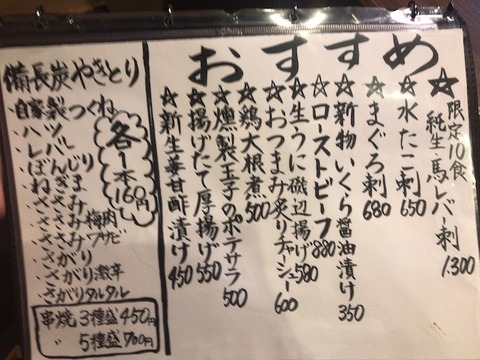 おすすめ
☆限定10食
純生馬レバー刺 1300
☆水たこ刺 650
☆まぐろ刺 680
☆新物いくら醤油漬け 350
☆ローストビーフ 880
☆生うに磯辺揚げ 580
☆おつまみ炙りチャーシュー 600
☆鶏大根煮 500
☆燻製玉子のポテサラ 500
☆揚げたて厚揚げ 550
☆新生姜甘酢漬け 450
備長炭やきとり
各1本160円
・自家製つくね
・ハツ
・レバー
・ぼんじり
・ねぎま
・ささみ
・ささみ梅肉
・ささみワサビ
・さがり
・さがり激辛
・さがりタルタル
串焼 3種盛 450円
〃 5種盛 700円